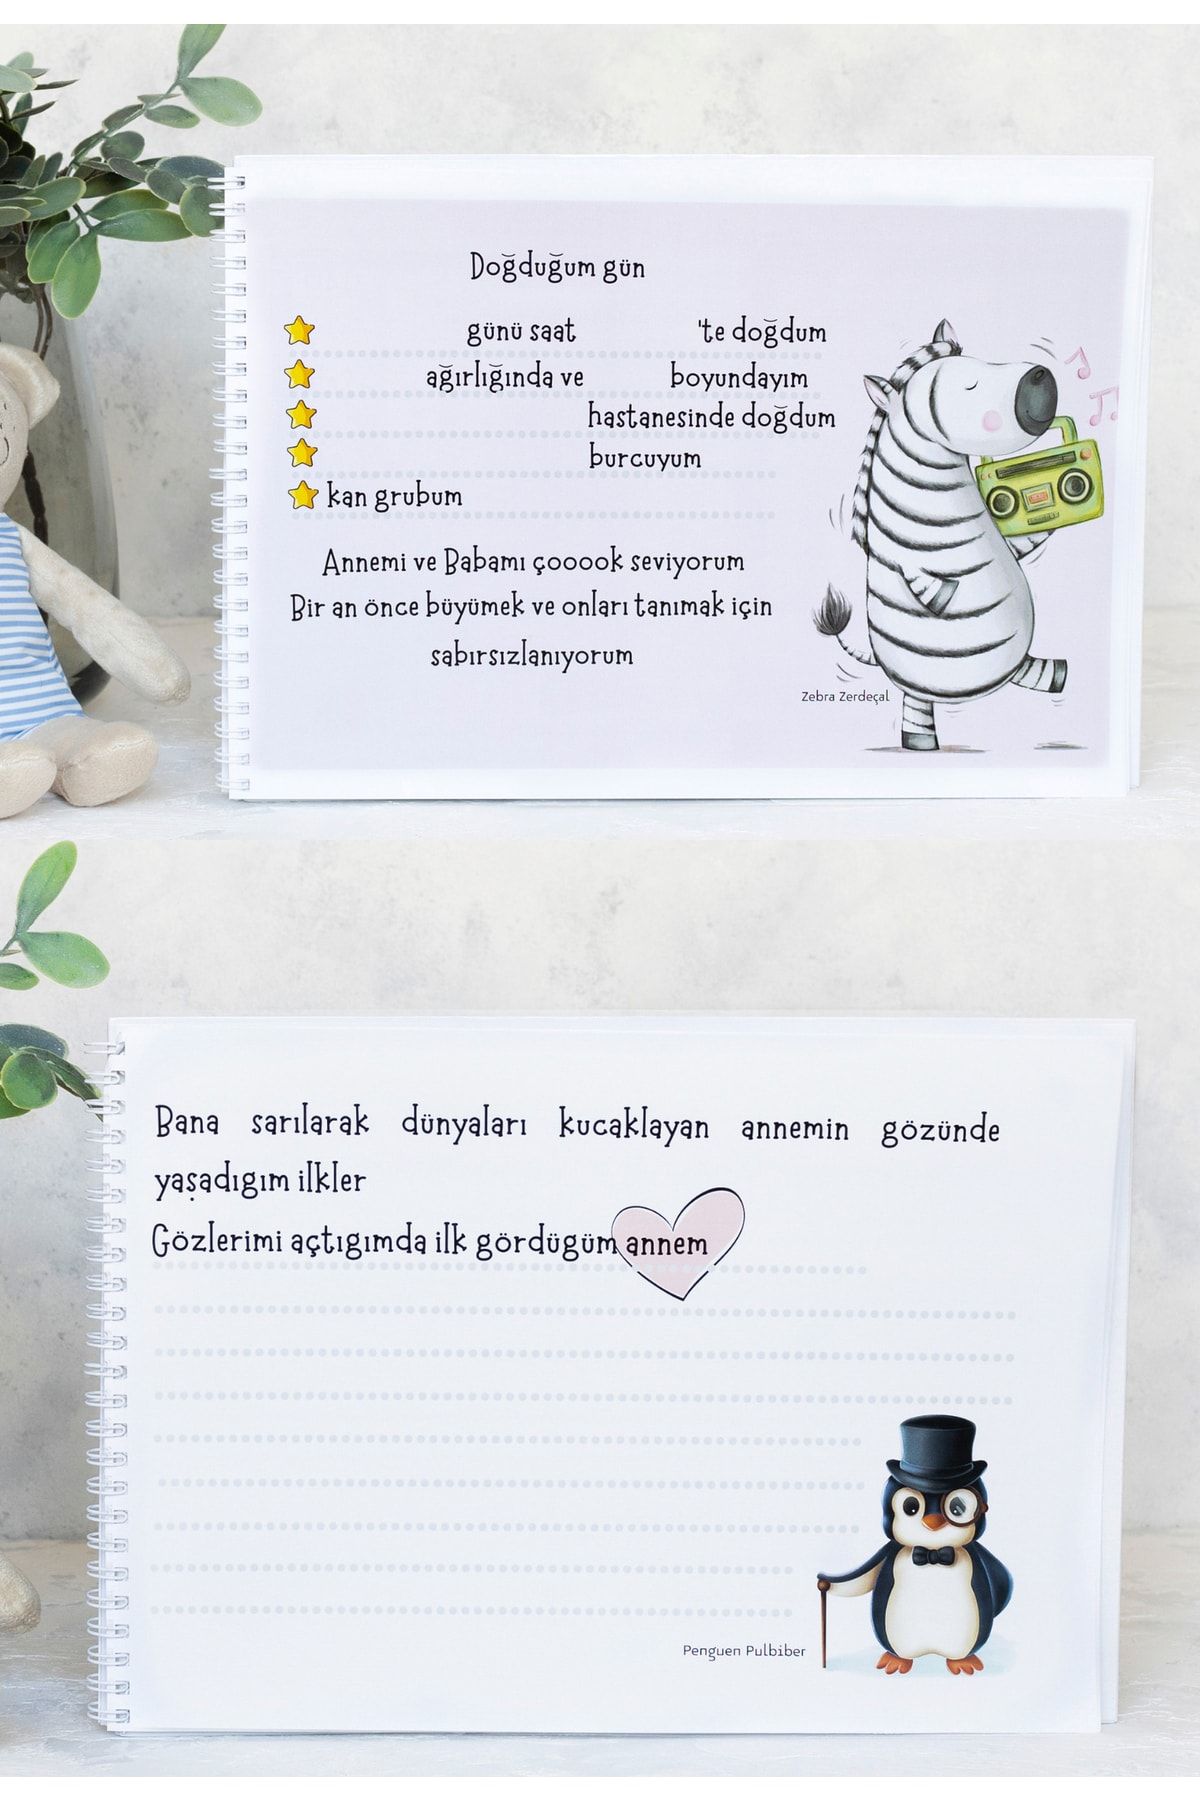 Doğduğum gün
günü saat 'te doğdum
ağırlığında ve boyundayım
hastanesinde doğdum
burcuyum
kan grubum
Annemi ve Babamı çooook seviyorum
Bir an önce büyümek ve onları tanımak için
sabırsızlanıyorum
Zebra Zerdeçal
Bana sarılarak dünyaları kucaklayan annemin gözünde
yaşadıgım ilkler
Gözlerimi açtıgımda ilk gördügüm annem
Penguen Pulbiber